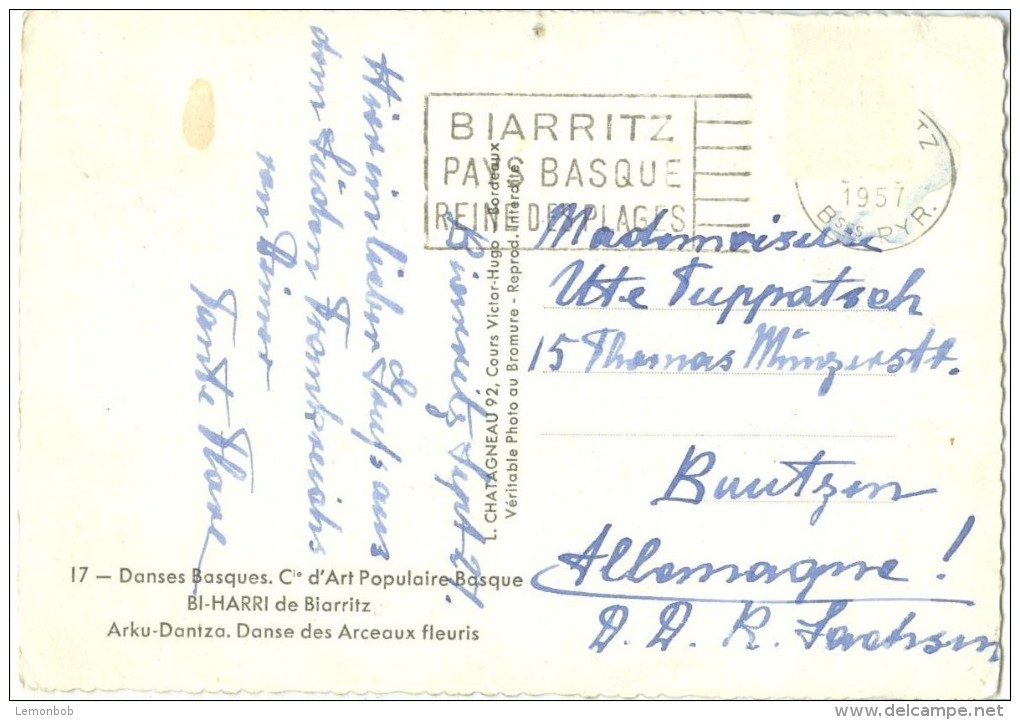 Biarritz, Sept. 27.
Hier ein lieber Gruß aus
dem Süden Frankreichs
von Deiner
Tante Flore
BIARRITZ
PAYS BASQUE
REINE DES PLAGES
1957
Bses PYR.
L. CHATAGNEAU 92, Cours Victor-Hugo - Bordeaux
Véritable Photo au Bromure - Reprod. Interdite
Mademoiselle
Ute Tuppatsch
15 Thomas Münzerstr.
Bautzen
Allemagne!
D. D. R. Sachsen
17 — Danses Basques. Cie d'Art Populaire Basque
BI-HARRI de Biarritz
Arku-Dantza. Danse des Arceaux fleuris
Lemonbob
delcampe.net